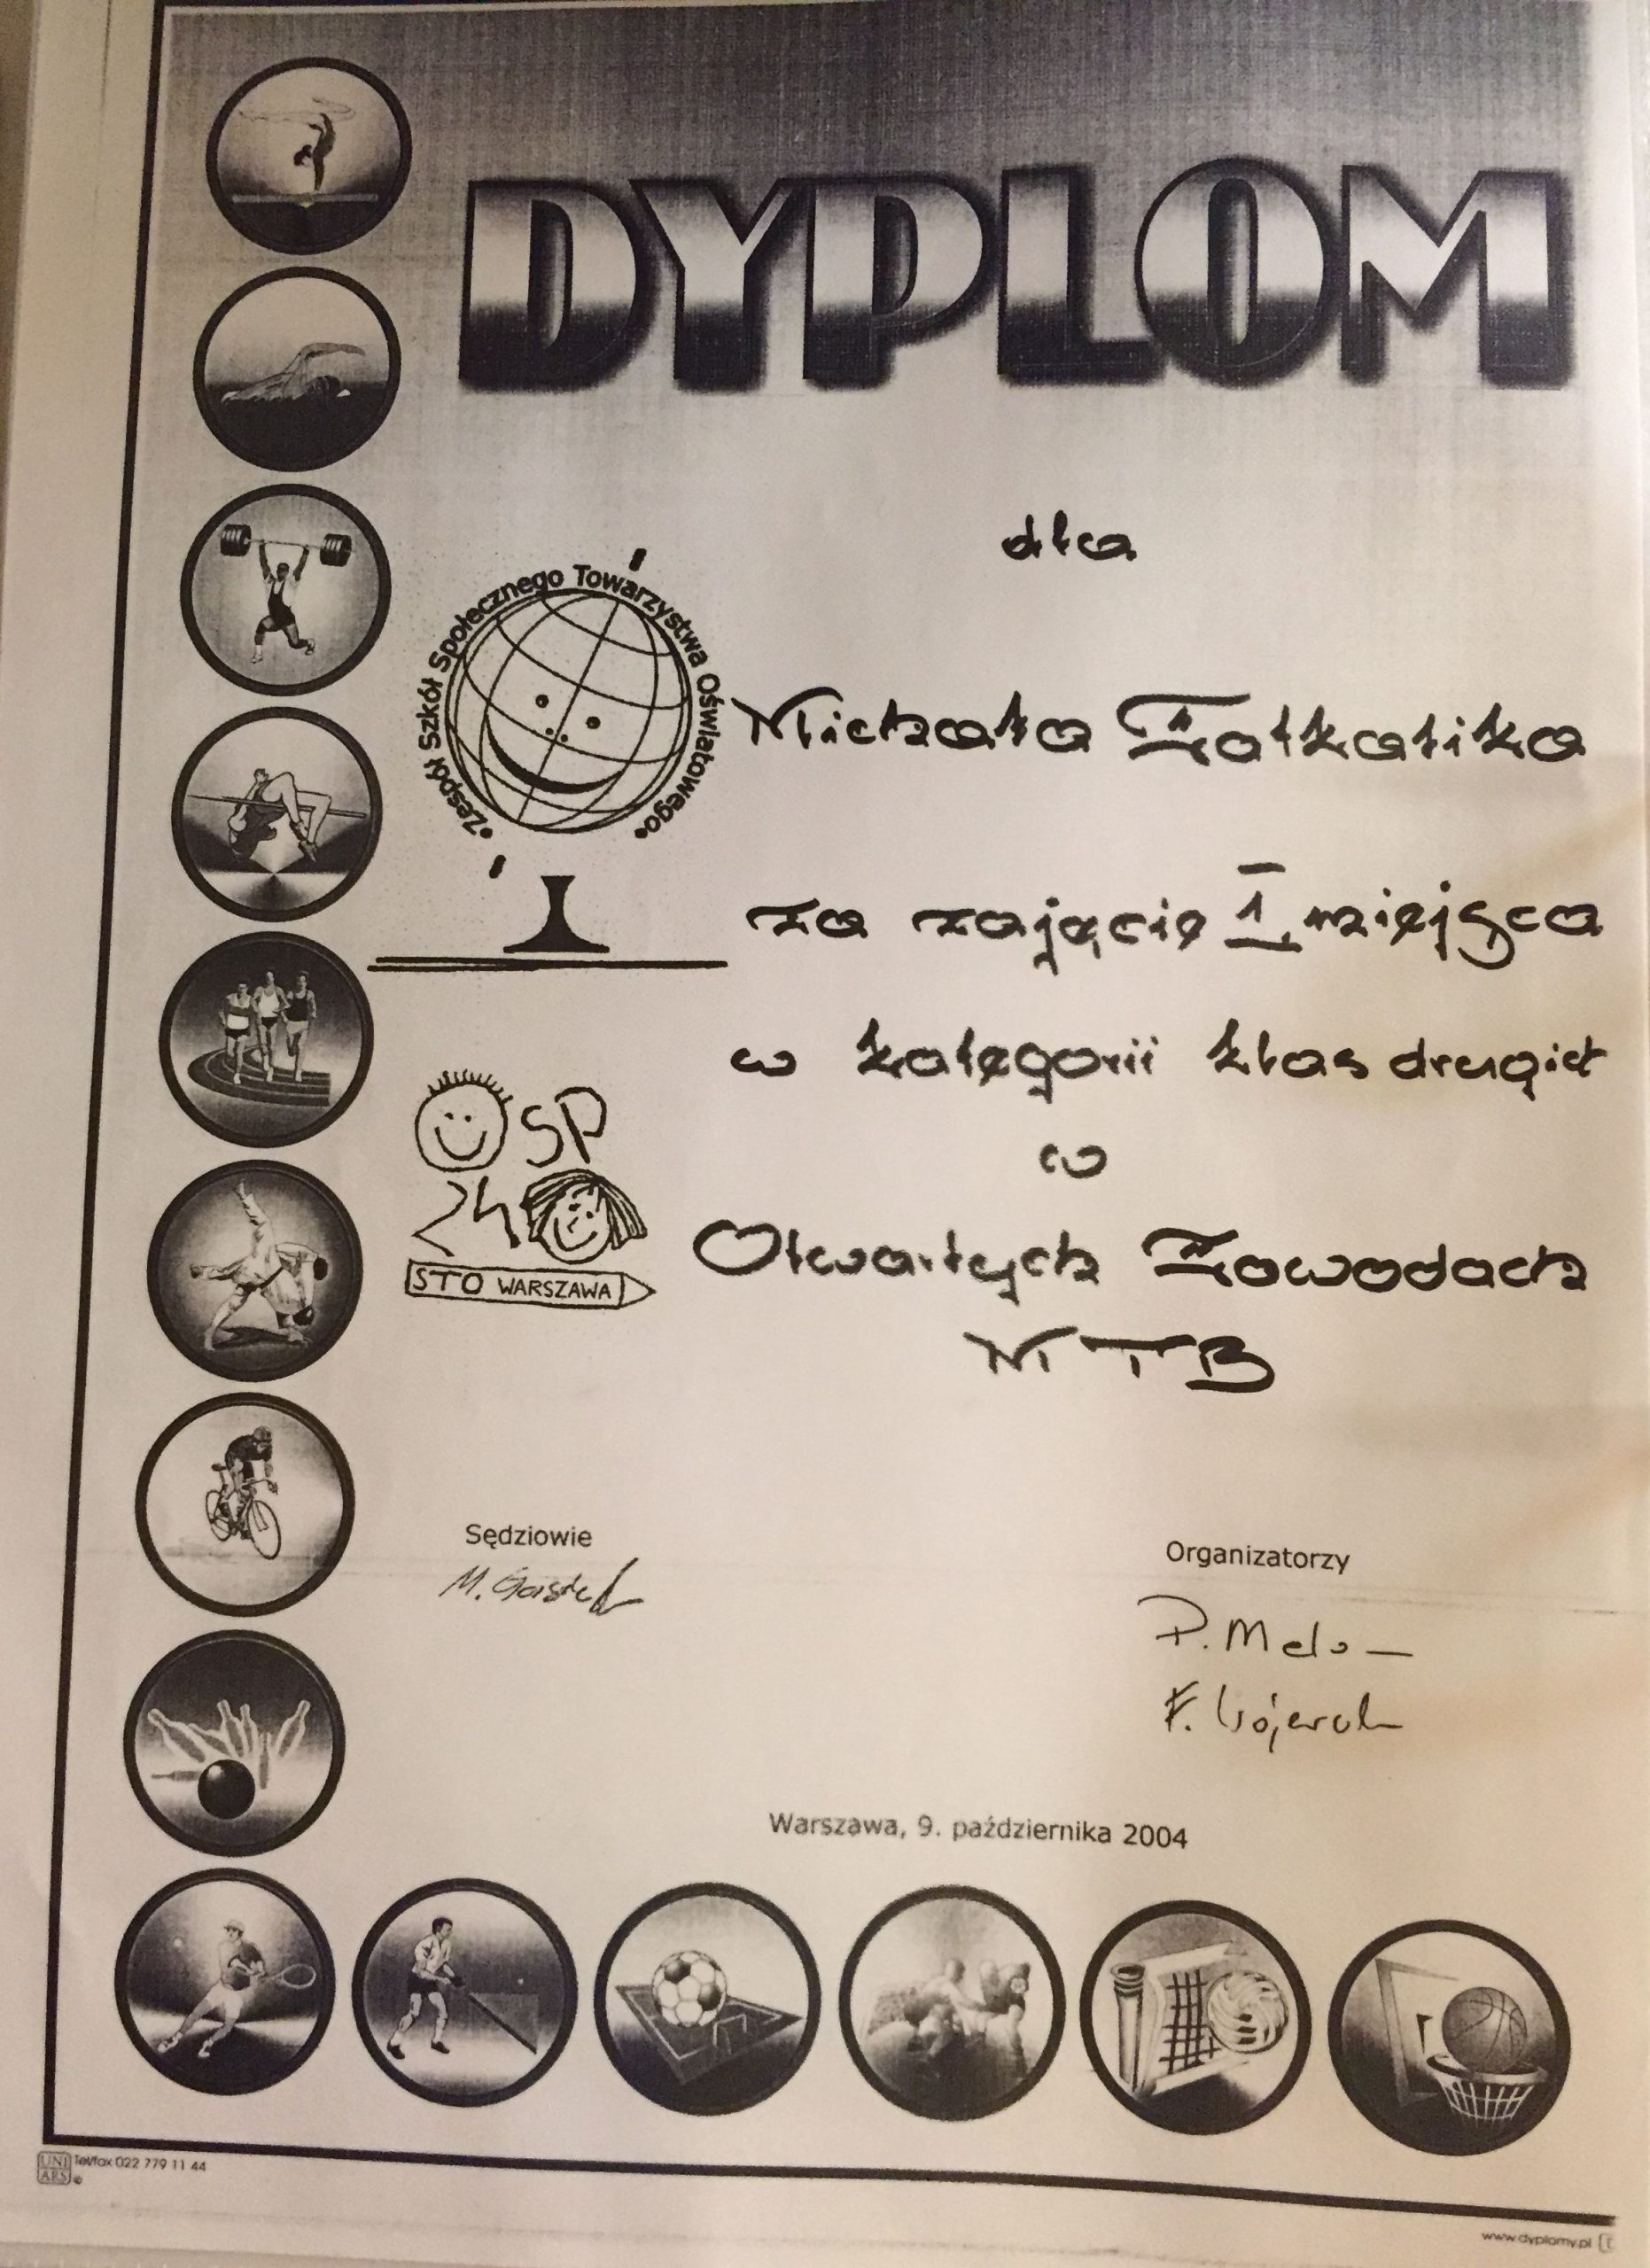 DYPLOM
dla
•Zespół Szkół Społecznego Towarzystwa Oświatowego•
Michała
za zajęcie I miejsca
w kategorii klas drugich
w
Otwartych Zawodach
MTB
SP
24
STO WARSZAWA
Sędziowie
M.
Organizatorzy
P.
F.
Warszawa, 9. października 2004
UNI ARS Tel/fax 022 779 11 44
www.dyplomy.pl